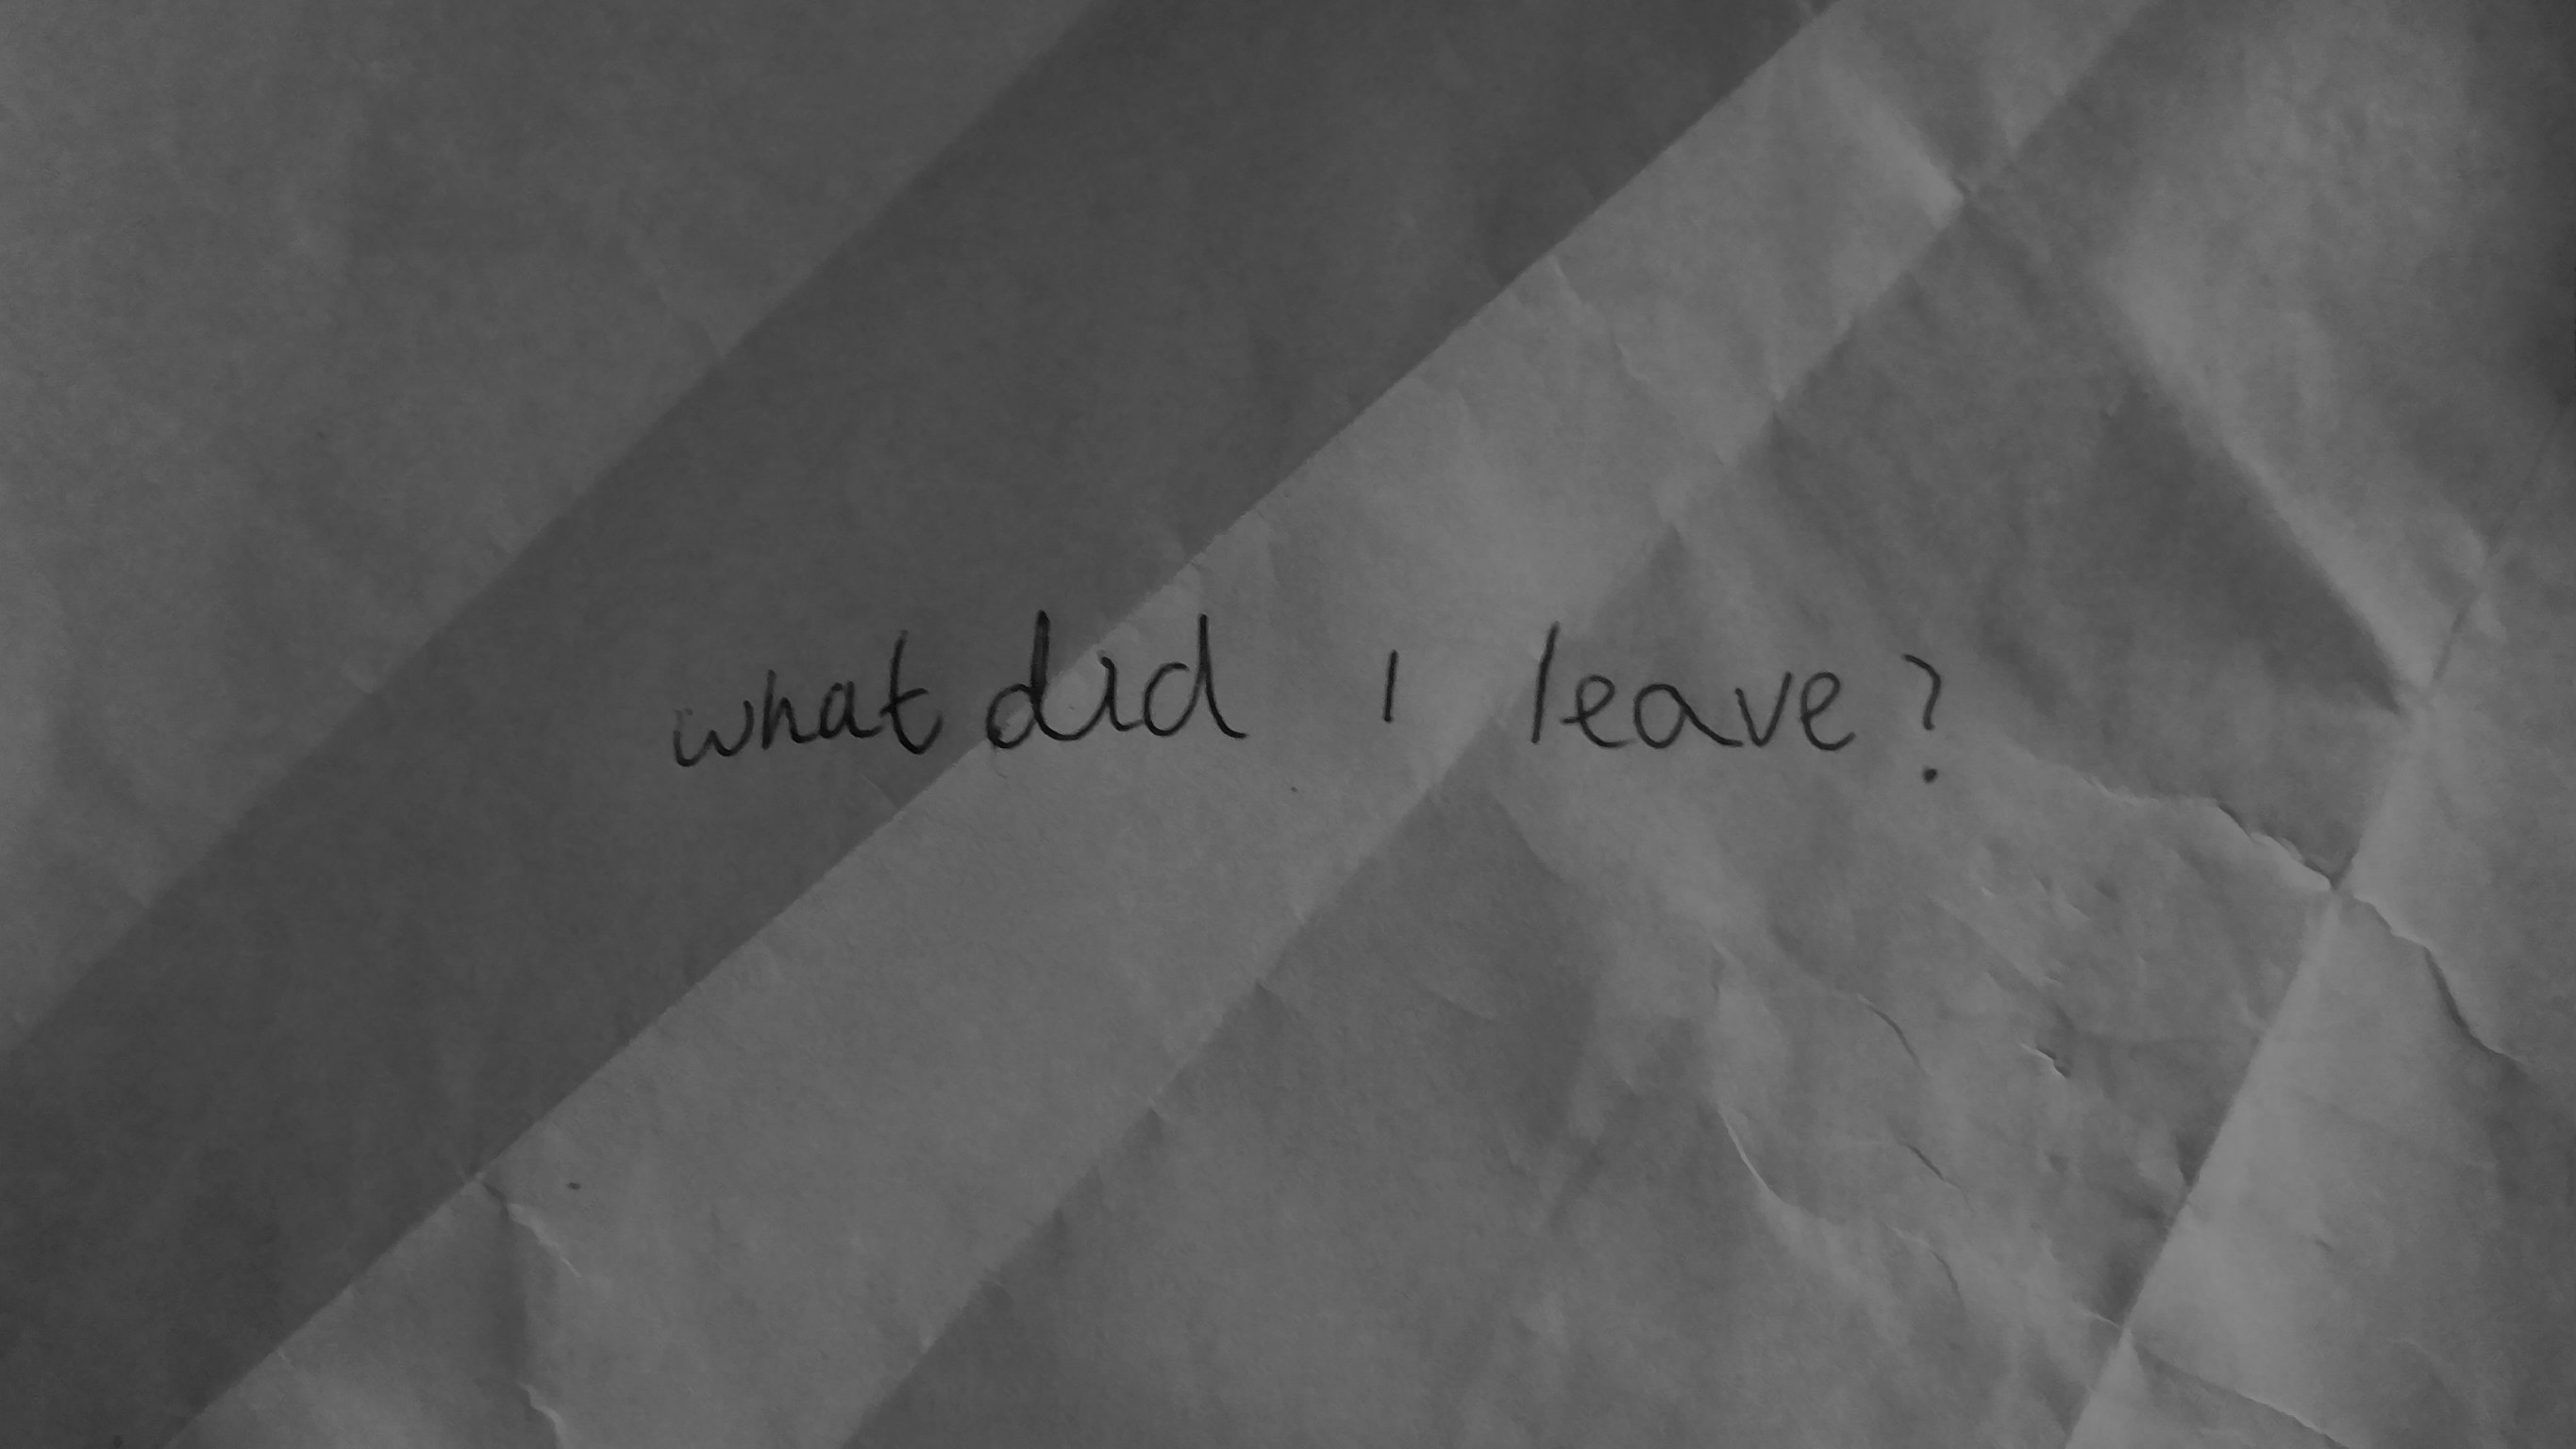 what did I leave?